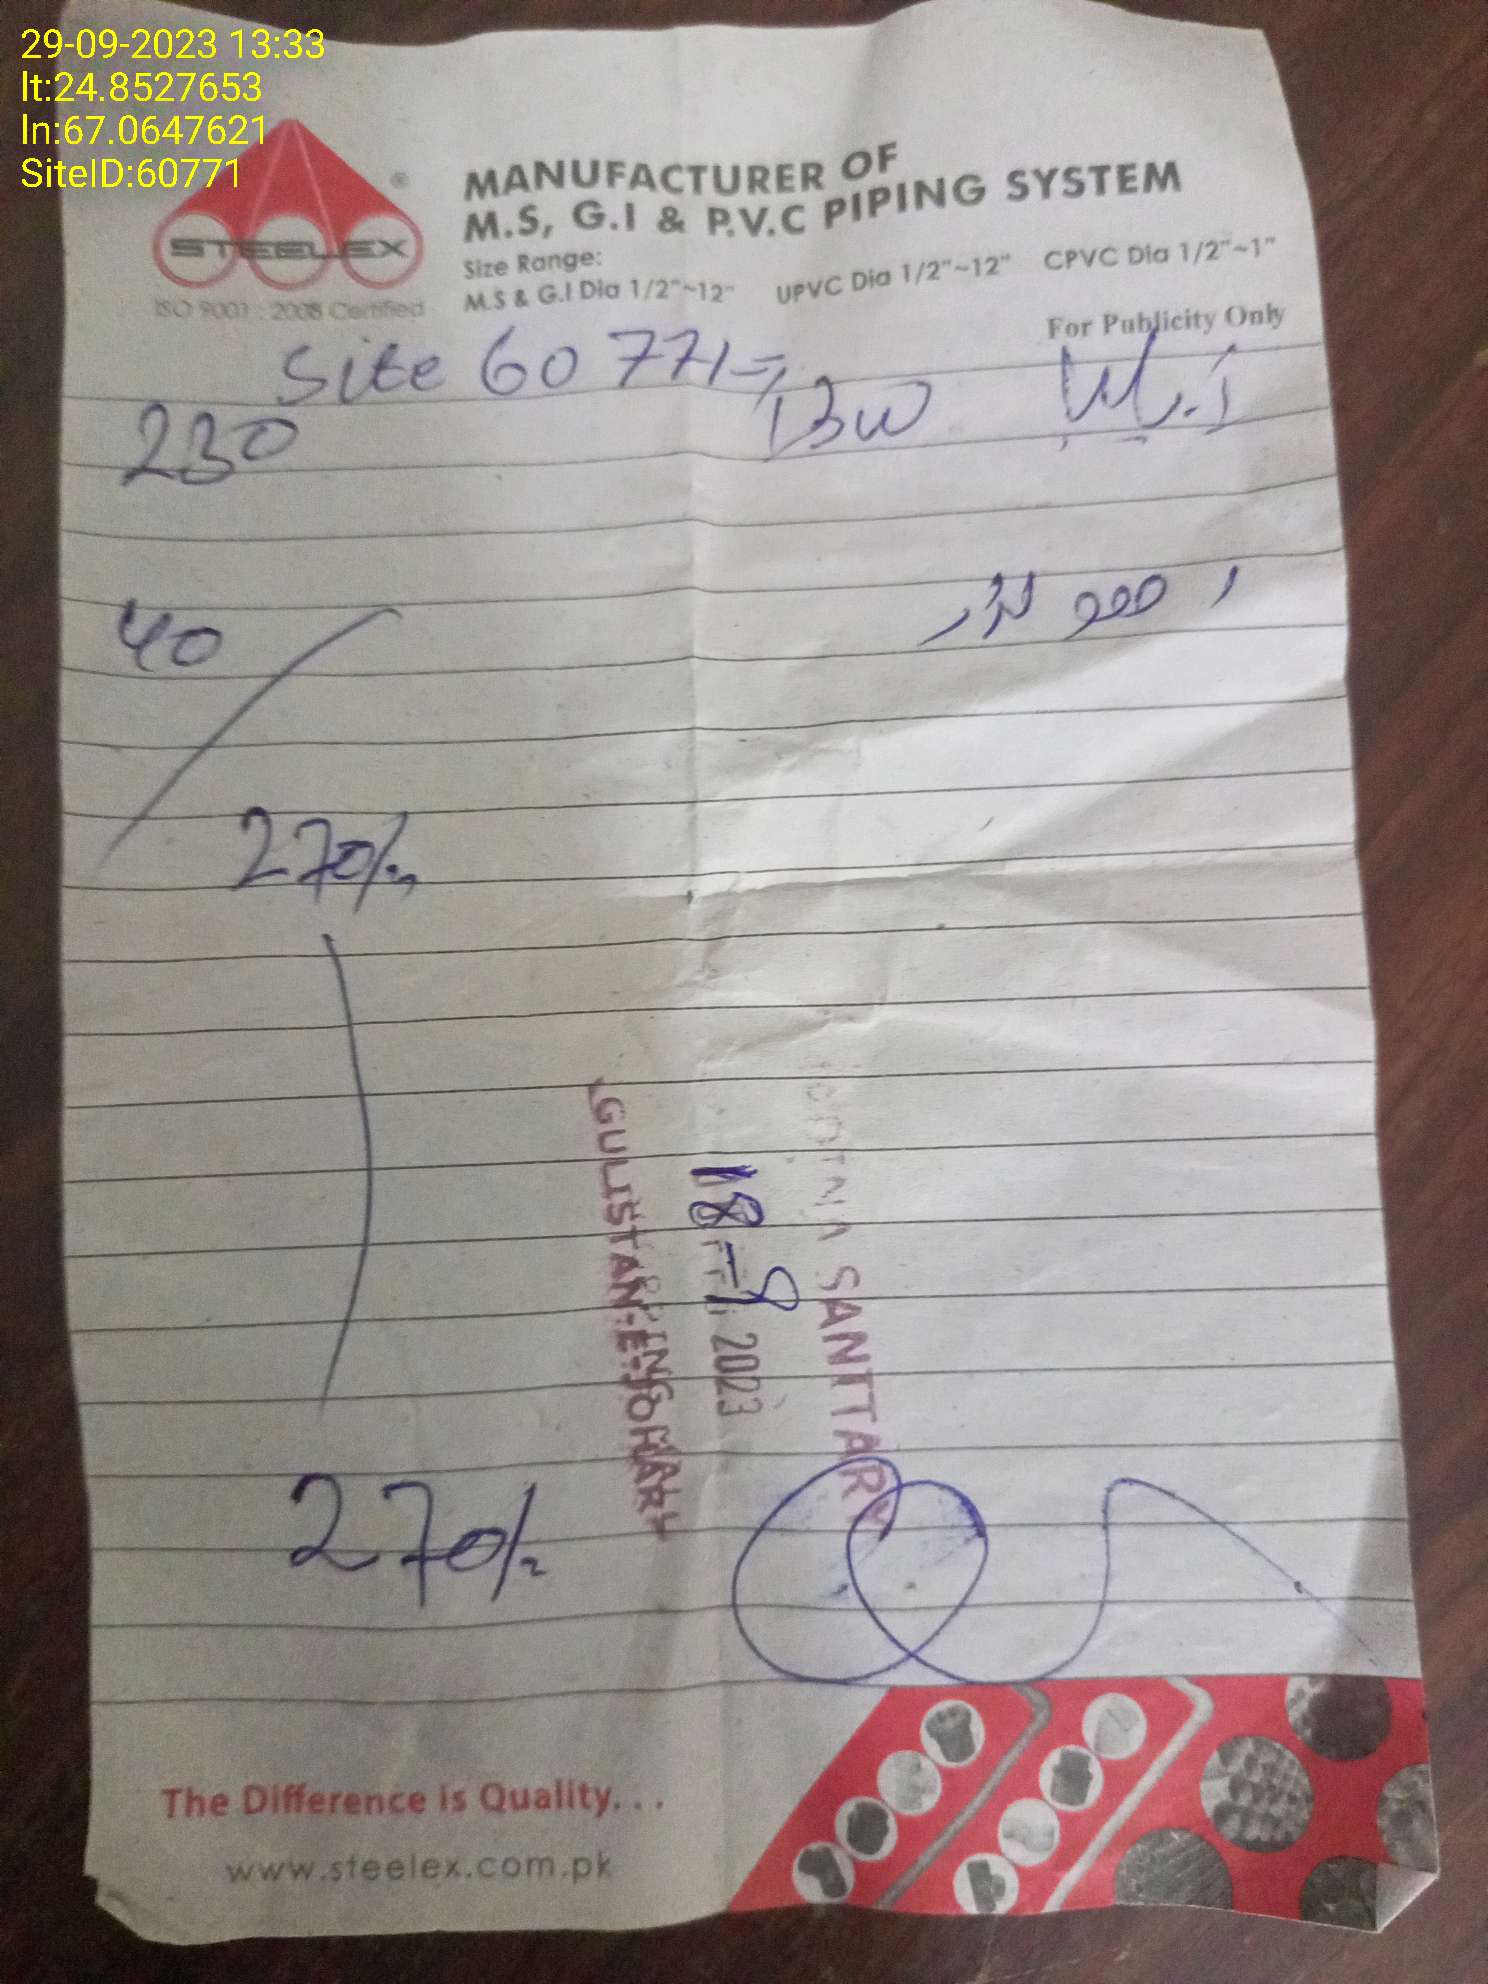 29-09-2023 13:33
lt:24.8527653
ln:67.0647621
SiteID:60771
STEELEX
®
ISO 9001 : 2008 Certified
MANUFACTURER OF
M.S, G.I & P.V.C PIPING SYSTEM
Size Range:
M.S & G.I Dia 1/2"~12" UPVC Dia 1/2"~12" CPVC Dia 1/2"~1"
For Publicity Only
Site 60771
230
40
270/-
SANITTARY
18-9 2023
GULISTAN-E-JOHAR
270/-
The Difference is Quality. . .
www.steelex.com.pk